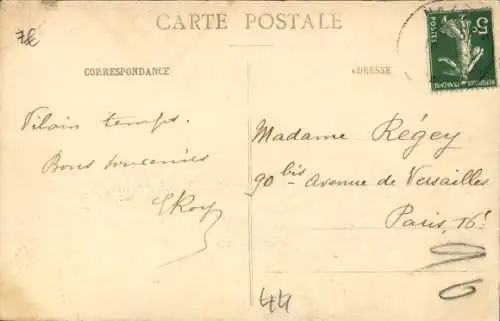 7E
CARTE POSTALE
CORRESPONDANCE
ADRESSE
5c
POSTES
Vilain temps.
Bons souvenirs
ERoy
Madame Régey
90 bis Avenue de Versailles
Paris, 16e
96
44